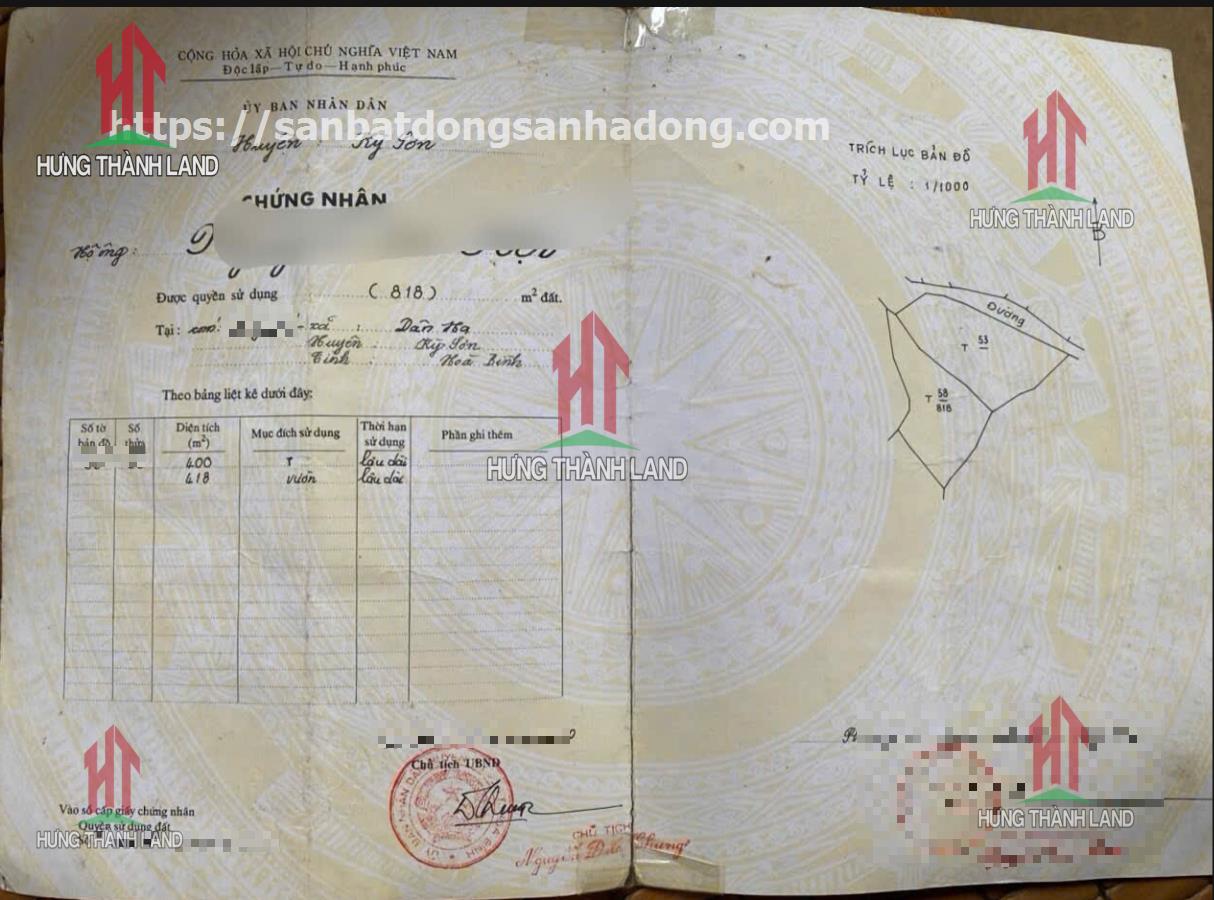 CỘNG HÒA XÃ HỘI CHỦ NGHĨA VIỆT NAM
Độc lập — Tự do — Hạnh phúc
ỦY BAN NHÂN DÂN
https://sanbatdongsanhadong.com
Huyện : Kỳ Sơn
HƯNG THÀNH LAND
CHỨNG NHẬN
Hộ ông :
Được quyền sử dụng (818) m² đất.
Tại : xóm - xã : Dân Hạ
Huyện : Kỳ Sơn
Tỉnh : Hoà Bình
Theo bảng liệt kê dưới đây:
Số tờ bản đồ Số thửa Diện tích (m²) Mục đích sử dụng Thời hạn sử dụng Phần ghi thêm
400 T lâu dài
418 vườn lâu dài
HƯNG THÀNH LAND
Chủ tịch UBND
CHỦ TỊCH
Nguyễn Đức Chung
Vào sổ cấp giấy chứng nhận
Quyền sử dụng đất
HƯNG THÀNH LAND
TRÍCH LỤC BẢN ĐỒ
TỶ LỆ : 1/1000
HƯNG THÀNH LAND
B
Đường
T 53
T 58
818
HƯNG THÀNH LAND